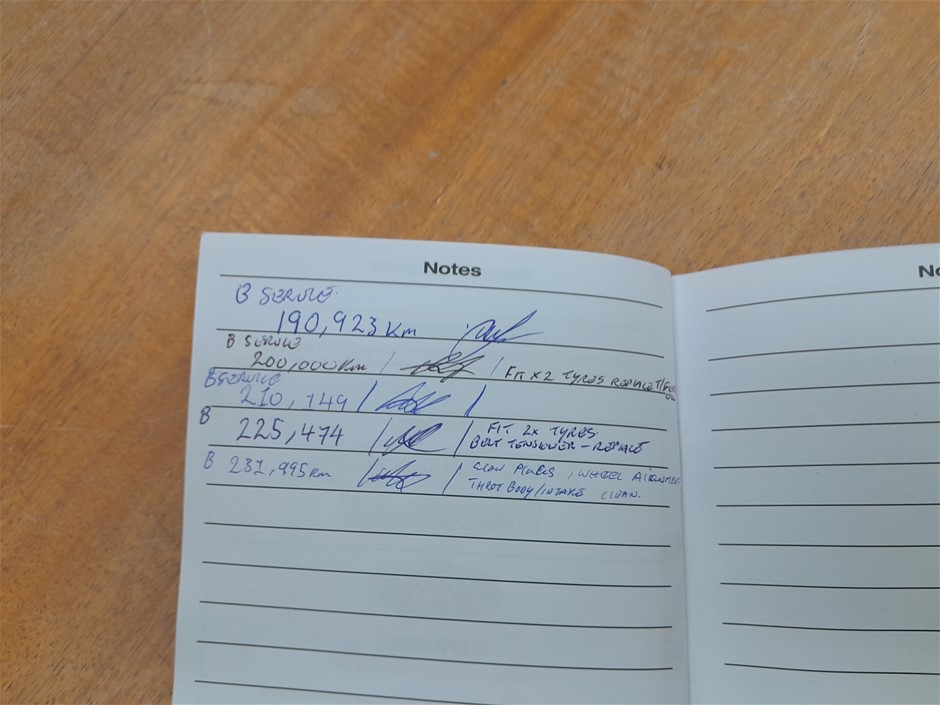 Notes
B SERVICE
190,923 Km
B SERVICE
200,000 Km / / FIT X 2 TYRES REPLACE
B SERVICE
210,149 / /
B
225,474 / / FIT 2x TYRES.
BELT TENSIONER - REPLACE
B 231,995 Km / / GLOW PLUGS, WHEEL ALIGNMENT
THROT BODY/INTAKE CLEAN.
No